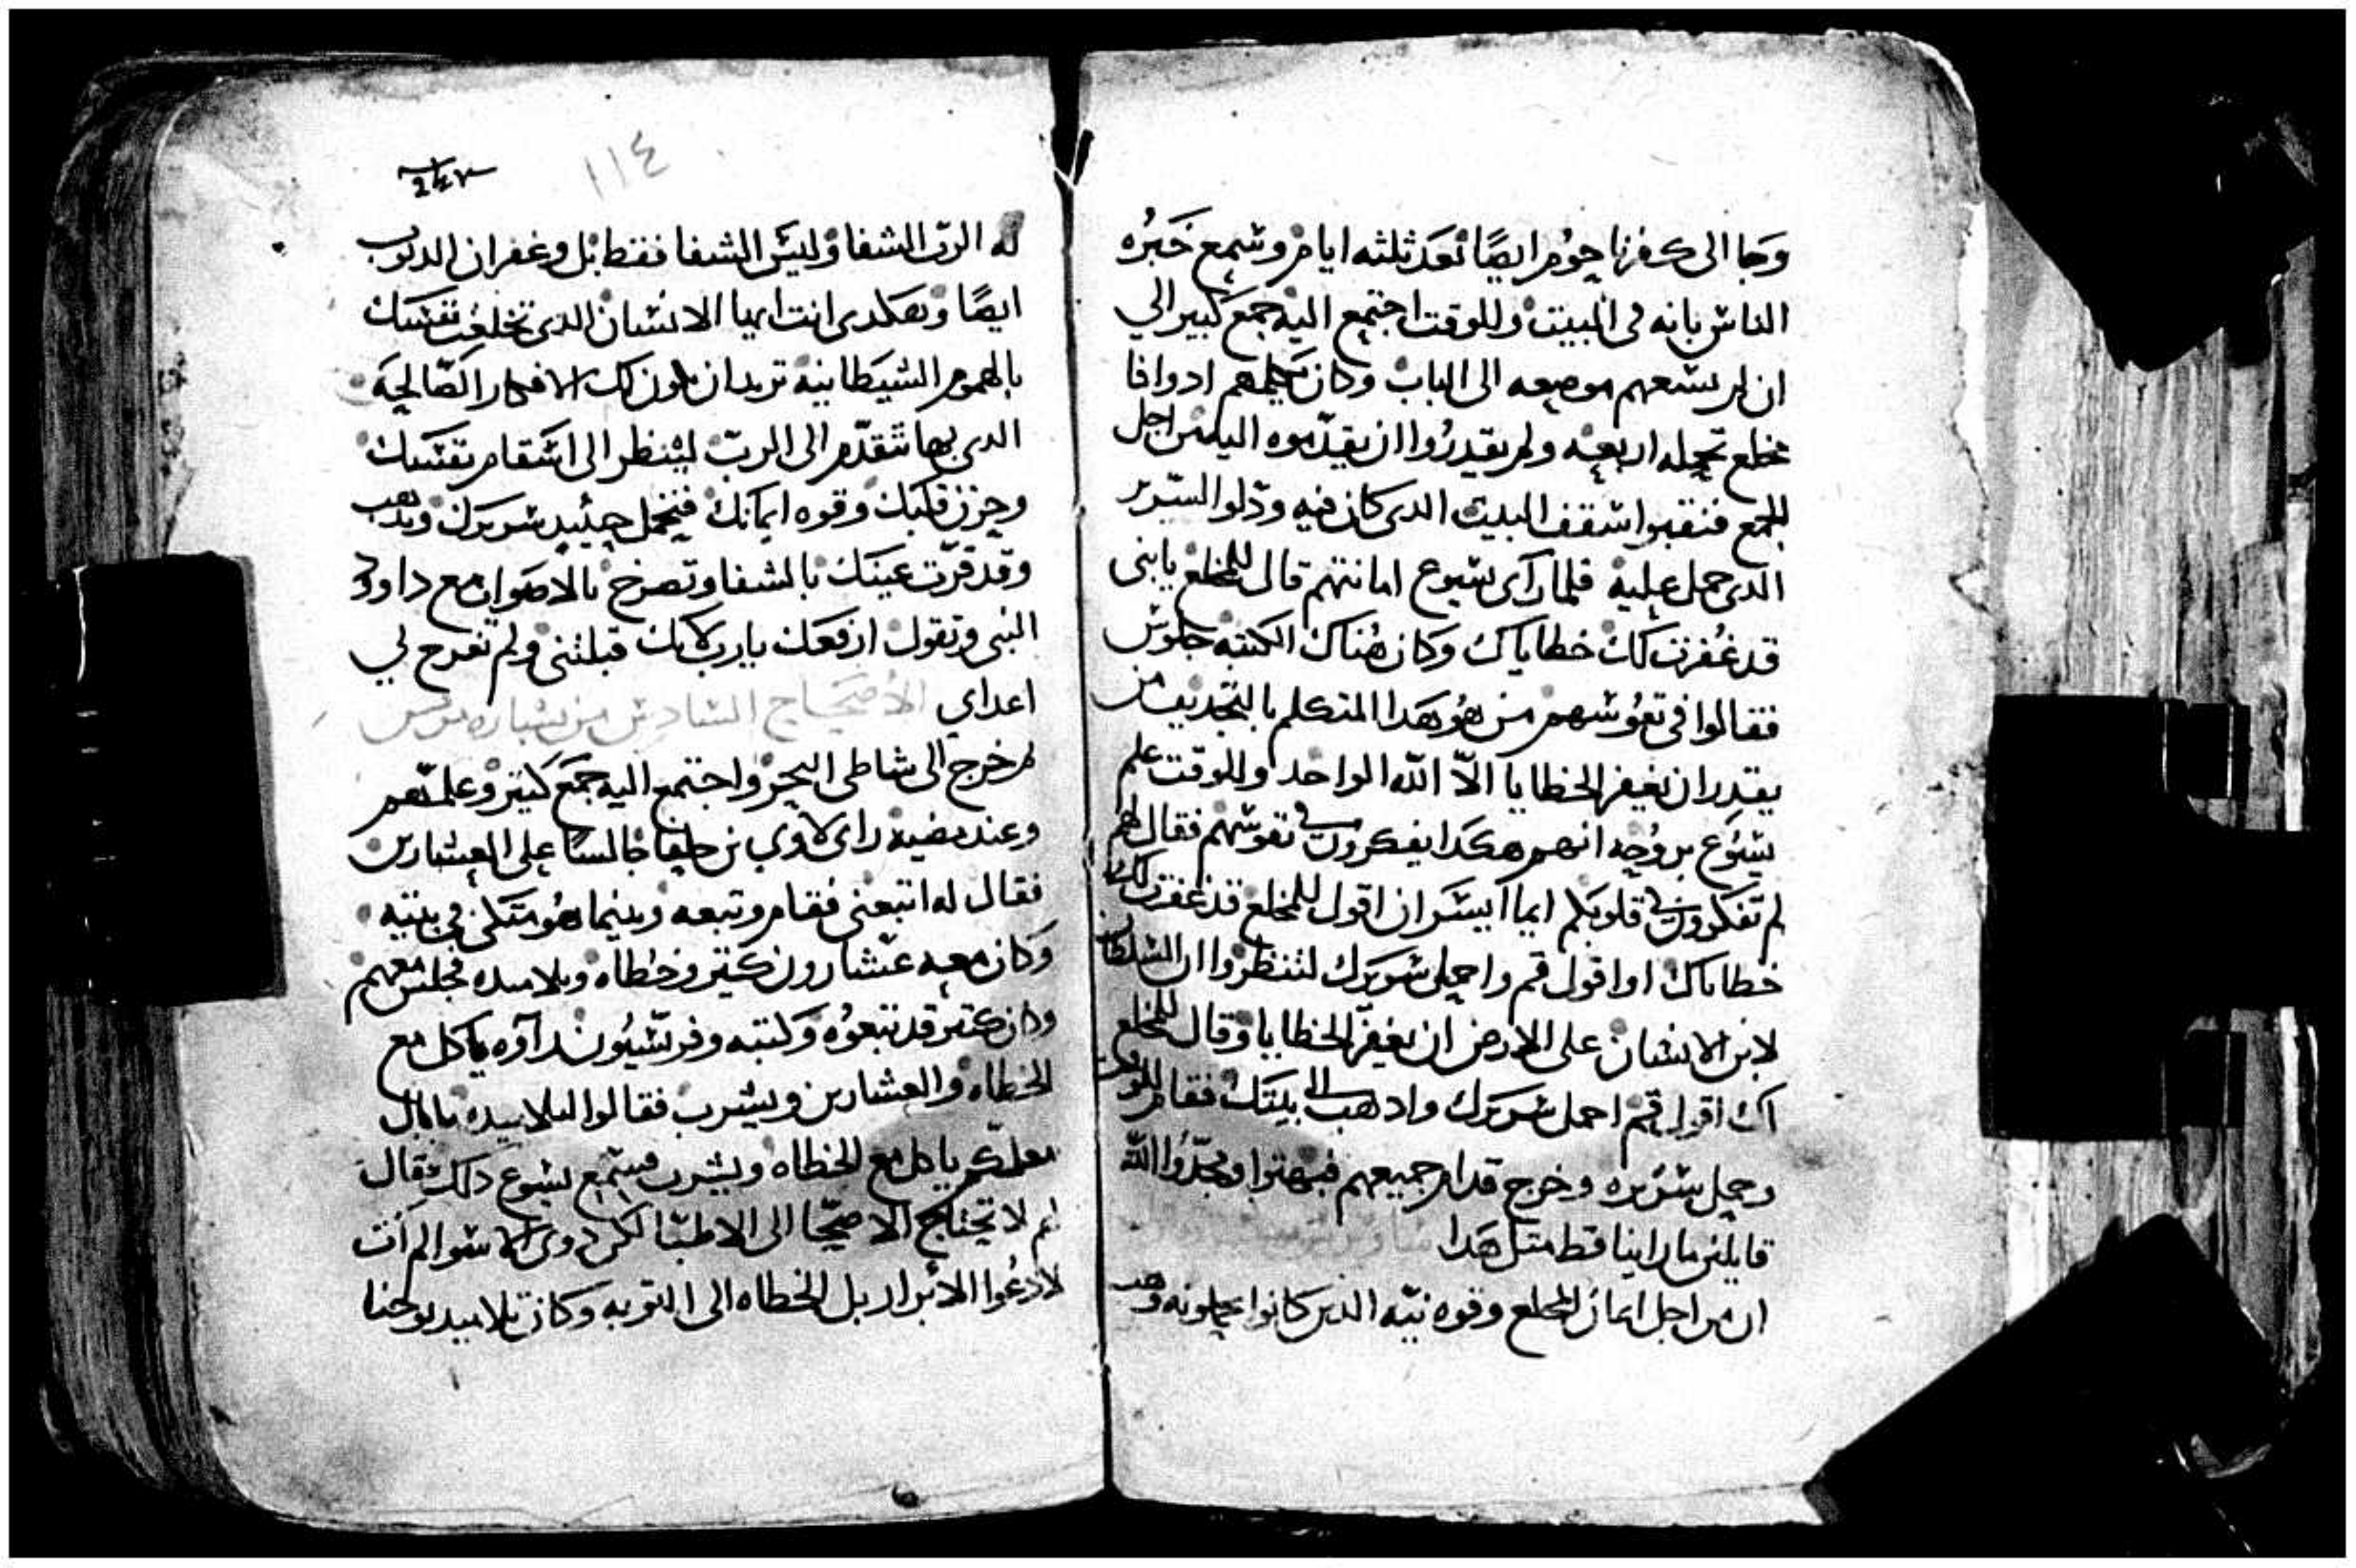 وجا الى كفرناحوم ايضًا بعد ثلثه ايام وسمع خبره
الناس بانه فى البيت وللوقت اجتمع اليه جمع كبير الي
ان لم يسعهم موضعه الى الباب وكان يكلمهم ادوافا
مخلع تحمله اربعه ولم يقدروا ان يقدموه اليه من اجل
الجمع فنقبوا سقف البيت الدى كان فيه ودلوا السرير
الدى حمل عليه فلما رآى يسوع امانتهم قال للمخلع يابنى
قد غُفرت لك خطاياك وكان هُناك الكتبه جلوس
فقالوا فى نفوسهم من هُو هدا المتكلم بالتجديف من
يقدر ان يغفر الخطايا الاّ الله الواحد وللوقت علم
يسوع بروُحه انهم هكدا يفكرون فى نفوسهم فقال لهم
لم تفكرون فى قلوبكم ايما ايسر ان اقول للمخلع قد غفرت لك
خطاياك او اقول قم واحمل سريرك لتنظروا ان السلطان
لابن الانسان على الارض ان يغفر الخطايا وقال للمخلع
لك اقول قم احمل سريرك وادهب الى بيتك فقام للوقت
وحمل سريره وخرج قدام جميعهم فبهتوا ومجدوا الله
قايلين ما راينا قط متل هدا
ان من اجل ايمان المخلع وقوه نيّه الدين كانوا يحملونه وهب
٢٤٣
١١٤
له الربّ الشفا وليس الشفا فقط بل وغفران الدنوب
ايضًا وهكدى انت ايها الانسان الدى تخلعت نفسك
بالهموم الشيطانيه تريد ان تكون لك الافكار الصّالحه
الدى بها تتقدّم الى الربّ لينظر الى اسقام نفسك
وحزن قلبك وقوه ايمانك فتحمل حينيد سريرك وتدهب
وقد قرّت عينك بالشفا وتصرخ بالاصوات مع داوود
النبى وتقول ارفعك يارب لانك قبلتنى ولم تفرح لي
اعداي الاصحاح السادس من بشاره مرقس
تم خرج الى شاطى البحر واجتمع اليه جمع كتير وعلمهم
وعند مضيه راى لاوي بن حلفا جالسًا على العشارين
فقال له اتبعنى فقام وتبعه وبينما هُو متكى في بيته
وكان معه عشارون كتير وخطاه وتلاميده فجلس معهم
وكان كتير قد تبعوُه وكتبه وفريسيُون راوه ياكل مع
الخطاه والعشارين ويشرب فقالوا لتلاميده ما بال
معلمكم ياكل مع الخطاه ويشرب فسمع يسوع دلك فقال
لهم لا تحتاج الاصحّا الى الاطبّا لكن دوى الاسوا لم آت
لادعُوا الابرار بل الخطاه الى التوبه وكان تلاميد يوحنا